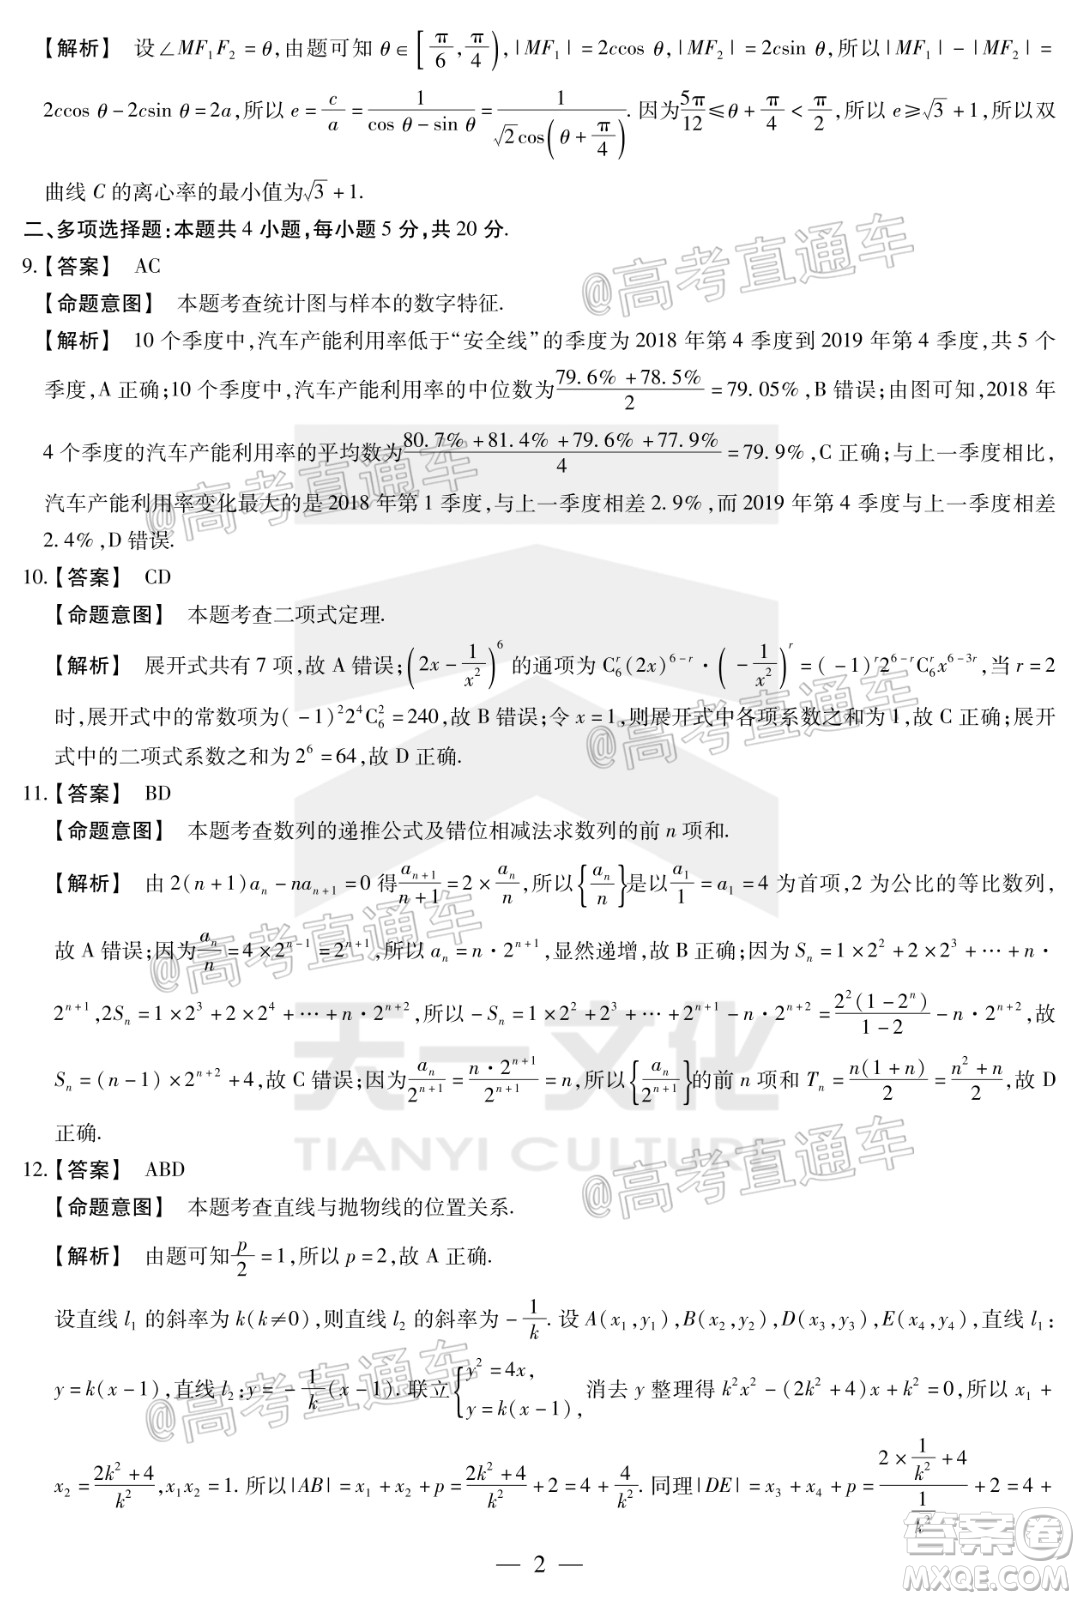 【解析】 设∠MF₁F₂=θ,由题可知θ∈[π/6,π/4),|MF₁|=2ccos θ,|MF₂|=2csin θ,所以|MF₁|-|MF₂|=
2ccos θ-2csin θ=2a,所以e=c/a=1/(cos θ-sin θ)=1/(√2cos(θ+π/4)).因为5π/12≤θ+π/4<π/2,所以e≥√3+1,所以双
曲线C的离心率的最小值为√3+1.
二、多项选择题:本题共4小题,每小题5分,共20分.
9.【答案】 AC
【命题意图】 本题考查统计图与样本的数字特征.
【解析】 10个季度中,汽车产能利用率低于“安全线”的季度为2018年第4季度到2019年第4季度,共5个
季度,A正确;10个季度中,汽车产能利用率的中位数为(79.6%+78.5%)/2=79.05%,B错误;由图可知,2018年
4个季度的汽车产能利用率的平均数为(80.7%+81.4%+79.6%+77.9%)/4=79.9%,C正确;与上一季度相比,
汽车产能利用率变化最大的是2018年第1季度,与上一季度相差2.9%,而2019年第4季度与上一季度相差
2.4%,D错误.
10.【答案】 CD
【命题意图】 本题考查二项式定理.
【解析】 展开式共有7项,故A错误;(2x-1/x²)⁶的通项为C₆ʳ(2x)⁶⁻ʳ·(-1/x²)ʳ=(-1)ʳ2⁶⁻ʳC₆ʳx⁶⁻³ʳ,当r=2
时,展开式中的常数项为(-1)²2⁴C₆²=240,故B错误;令x=1,则展开式中各项系数之和为1,故C正确;展开
式中的二项式系数之和为2⁶=64,故D正确.
11.【答案】 BD
【命题意图】 本题考查数列的递推公式及错位相减法求数列的前n项和.
【解析】 由2(n+1)aₙ-naₙ₊₁=0得aₙ₊₁/(n+1)=2×aₙ/n,所以{aₙ/n}是以a₁/1=a₁=4为首项,2为公比的等比数列,
故A错误;因为aₙ/n=4×2ⁿ⁻¹=2ⁿ⁺¹,所以aₙ=n·2ⁿ⁺¹,显然递增,故B正确;因为Sₙ=1×2²+2×2³+…+n·
2ⁿ⁺¹,2Sₙ=1×2³+2×2⁴+…+n·2ⁿ⁺²,所以-Sₙ=1×2²+2³+…+2ⁿ⁺¹-n·2ⁿ⁺²=2²(1-2ⁿ)/(1-2)-n·2ⁿ⁺²,故
Sₙ=(n-1)×2ⁿ⁺²+4,故C错误;因为aₙ/2ⁿ⁺¹=n·2ⁿ⁺¹/2ⁿ⁺¹=n,所以{aₙ/2ⁿ⁺¹}的前n项和Tₙ=n(1+n)/2=(n²+n)/2,故D
正确.
12.【答案】 ABD
【命题意图】 本题考查直线与抛物线的位置关系.
【解析】 由题可知p/2=1,所以p=2,故A正确.
设直线l₁的斜率为k(k≠0),则直线l₂的斜率为-1/k.设A(x₁,y₁),B(x₂,y₂),D(x₃,y₃),E(x₄,y₄),直线l₁:
y=k(x-1),直线l₂:y=-1/k(x-1).联立{y²=4x, y=k(x-1), 消去y整理得k²x²-(2k²+4)x+k²=0,所以x₁+
x₂=(2k²+4)/k²,x₁x₂=1.所以|AB|=x₁+x₂+p=(2k²+4)/k²+2=4+4/k².同理|DE|=x₃+x₄+p=(2×1/k²+4)/(1/k²)+2=4+
— 2 —
@高考直通车
@高考直通车
@高考直通车
@高考直通车
@高考直通车
@高考直通车
天一文化
TIANYI CULTURE
答案卷
MXQE.COM